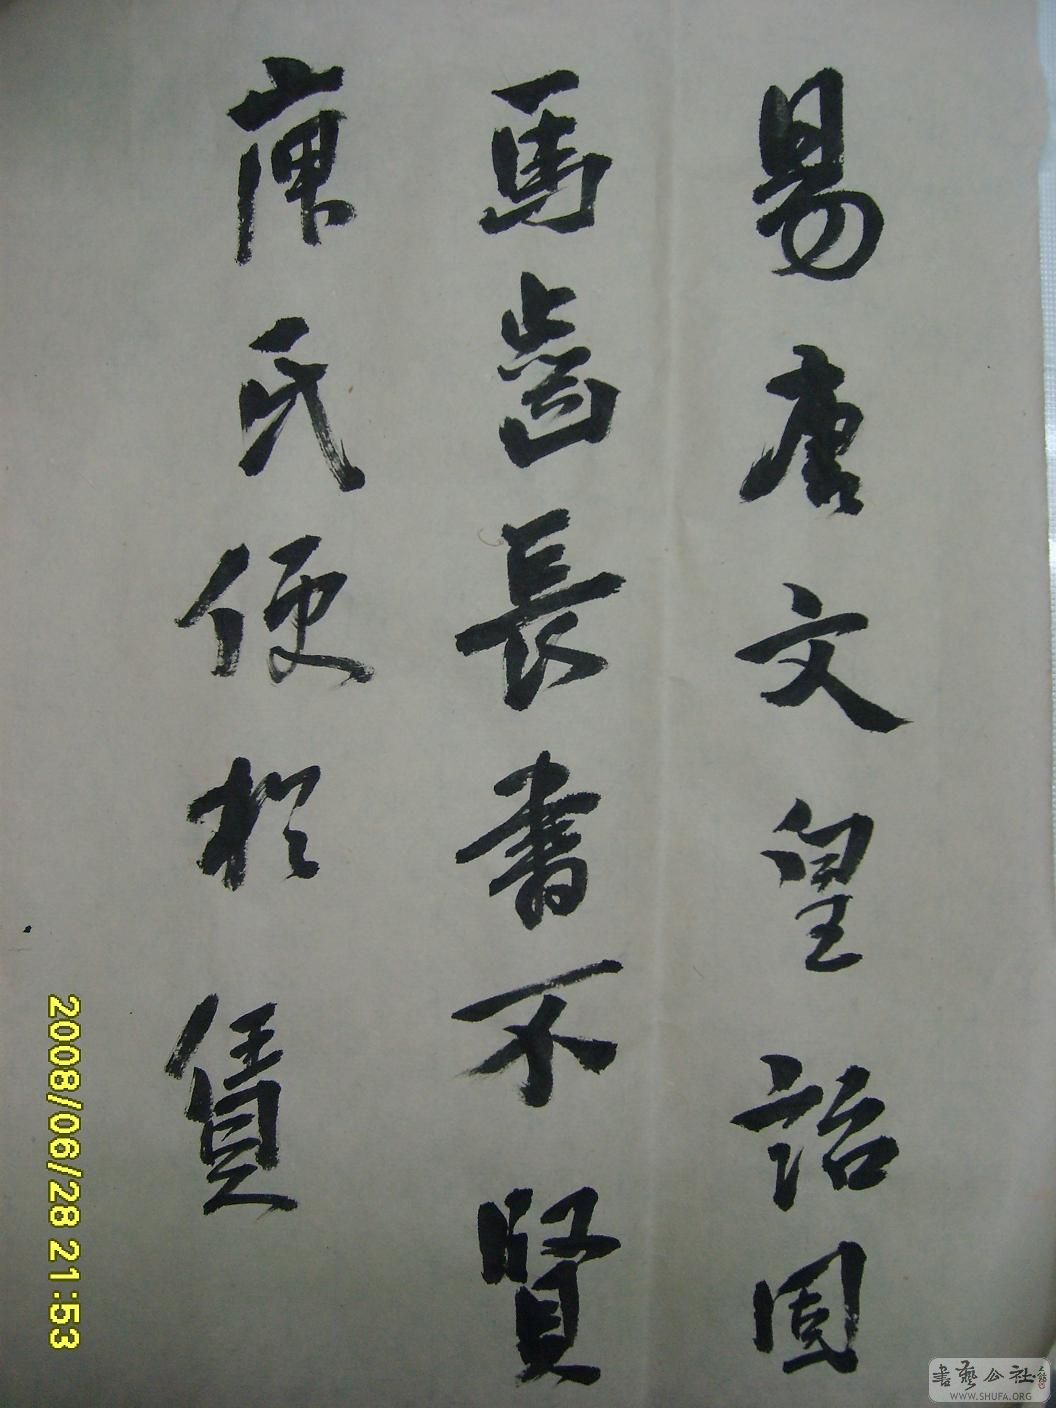 易唐文皇詔固
馬齒長書不賢
氏便於賃
2008/06/28 21:53
書藝公社
WWW.SHUFA.ORG